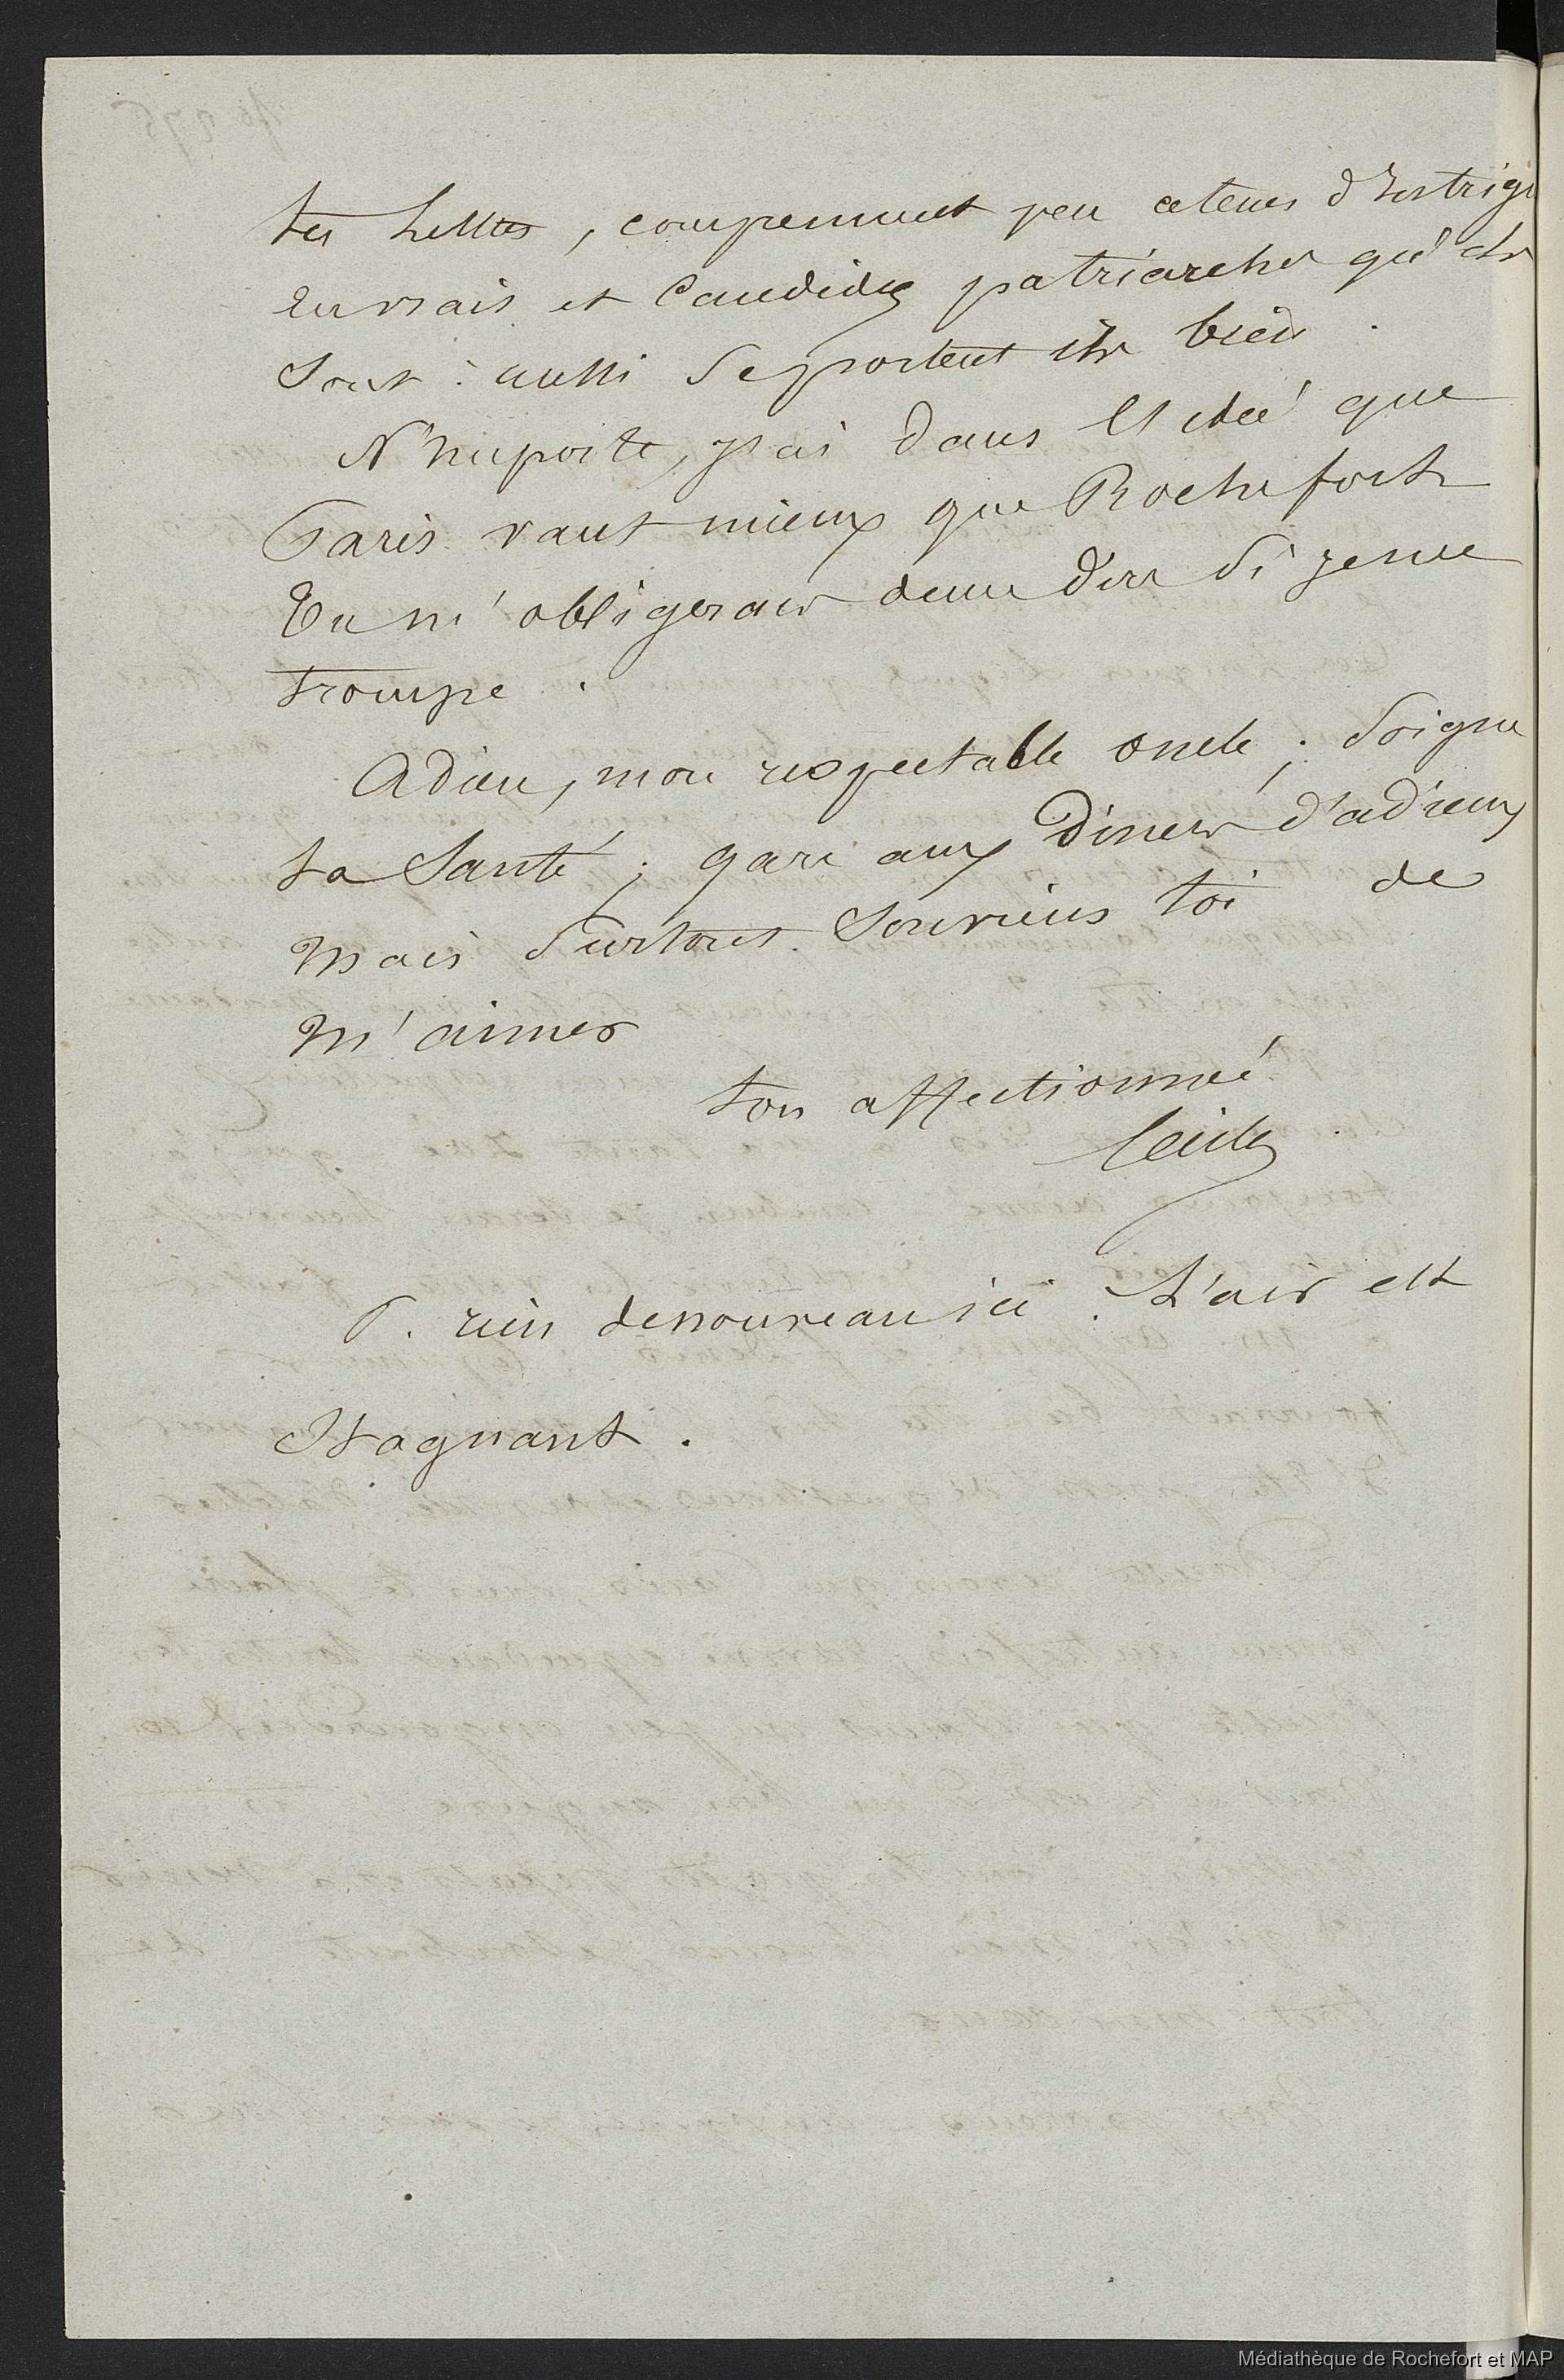 tes lettres, comprennent peu ce tems d'Intrigu
En vrais et Candides patriarches qu'ils
Sont : aussi Se portent ils bien.
N'importe, j'ai dans l'idée que
Paris vaut mieux que Rochefort
Tu m'obligerais de me dire Si je me
trompe.
Adieu, mon respectable oncle ; Soigne
ta Santé ; gare aux Diners d'adieux
Mais Surtout Souviens toi de
M'aimer
ton affectionné
P. rien de nouveau ici. L'air est
Stagnant.
Médiathèque de Rochefort et MAP